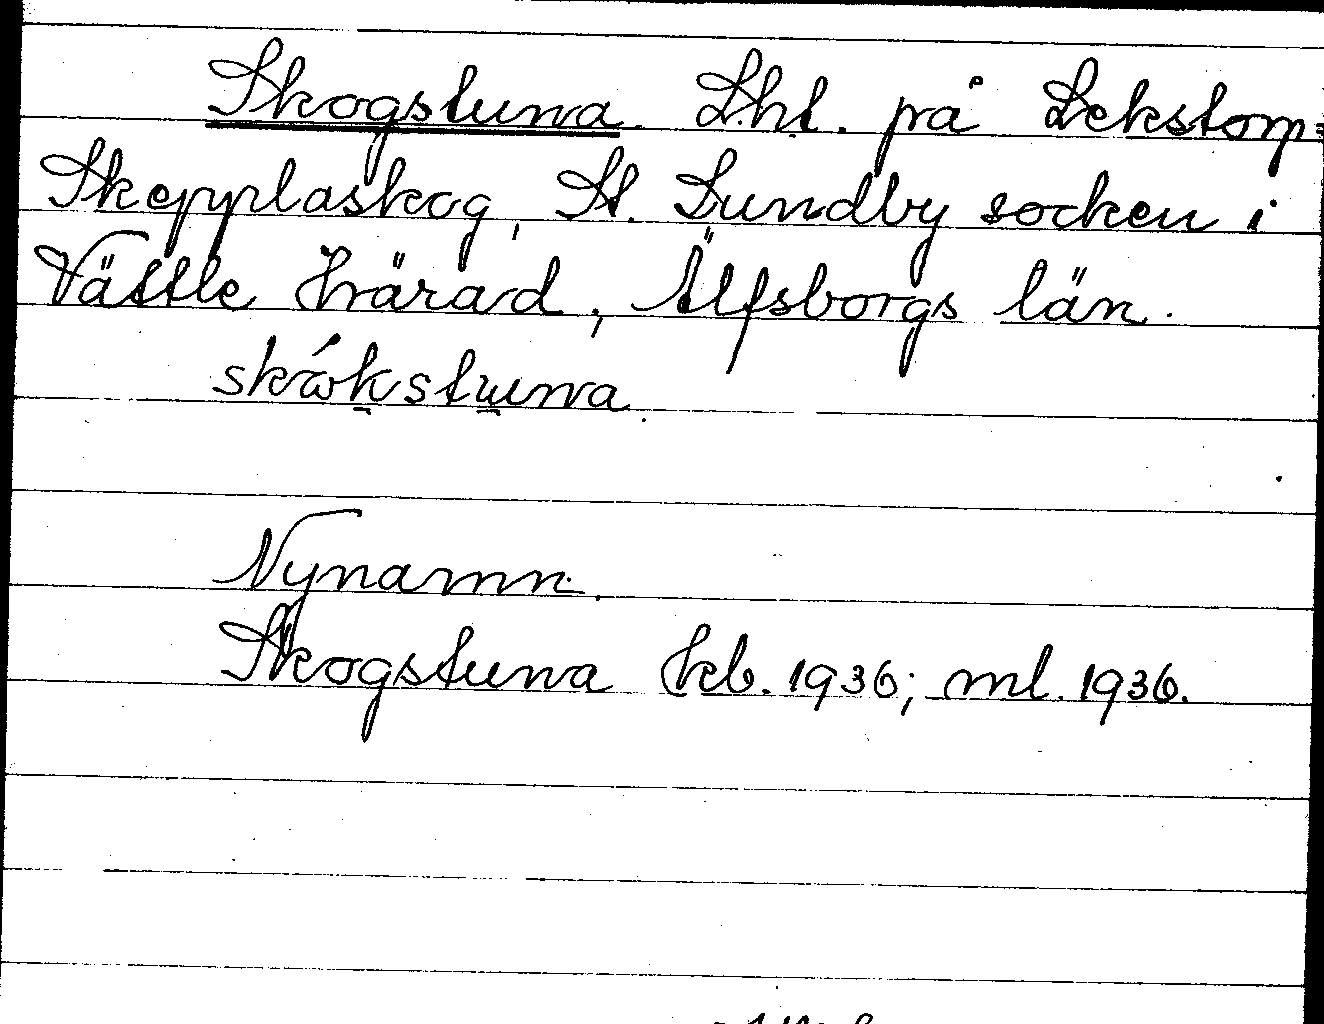 Skogstuna. Lht. på Lekstorp=
Skepplaskog, St. Lundby socken i
Vättle härad, Älfsborgs län.
skókstuna.
Nynamn.
Skogstuna kb. 1936; ml. 1936.